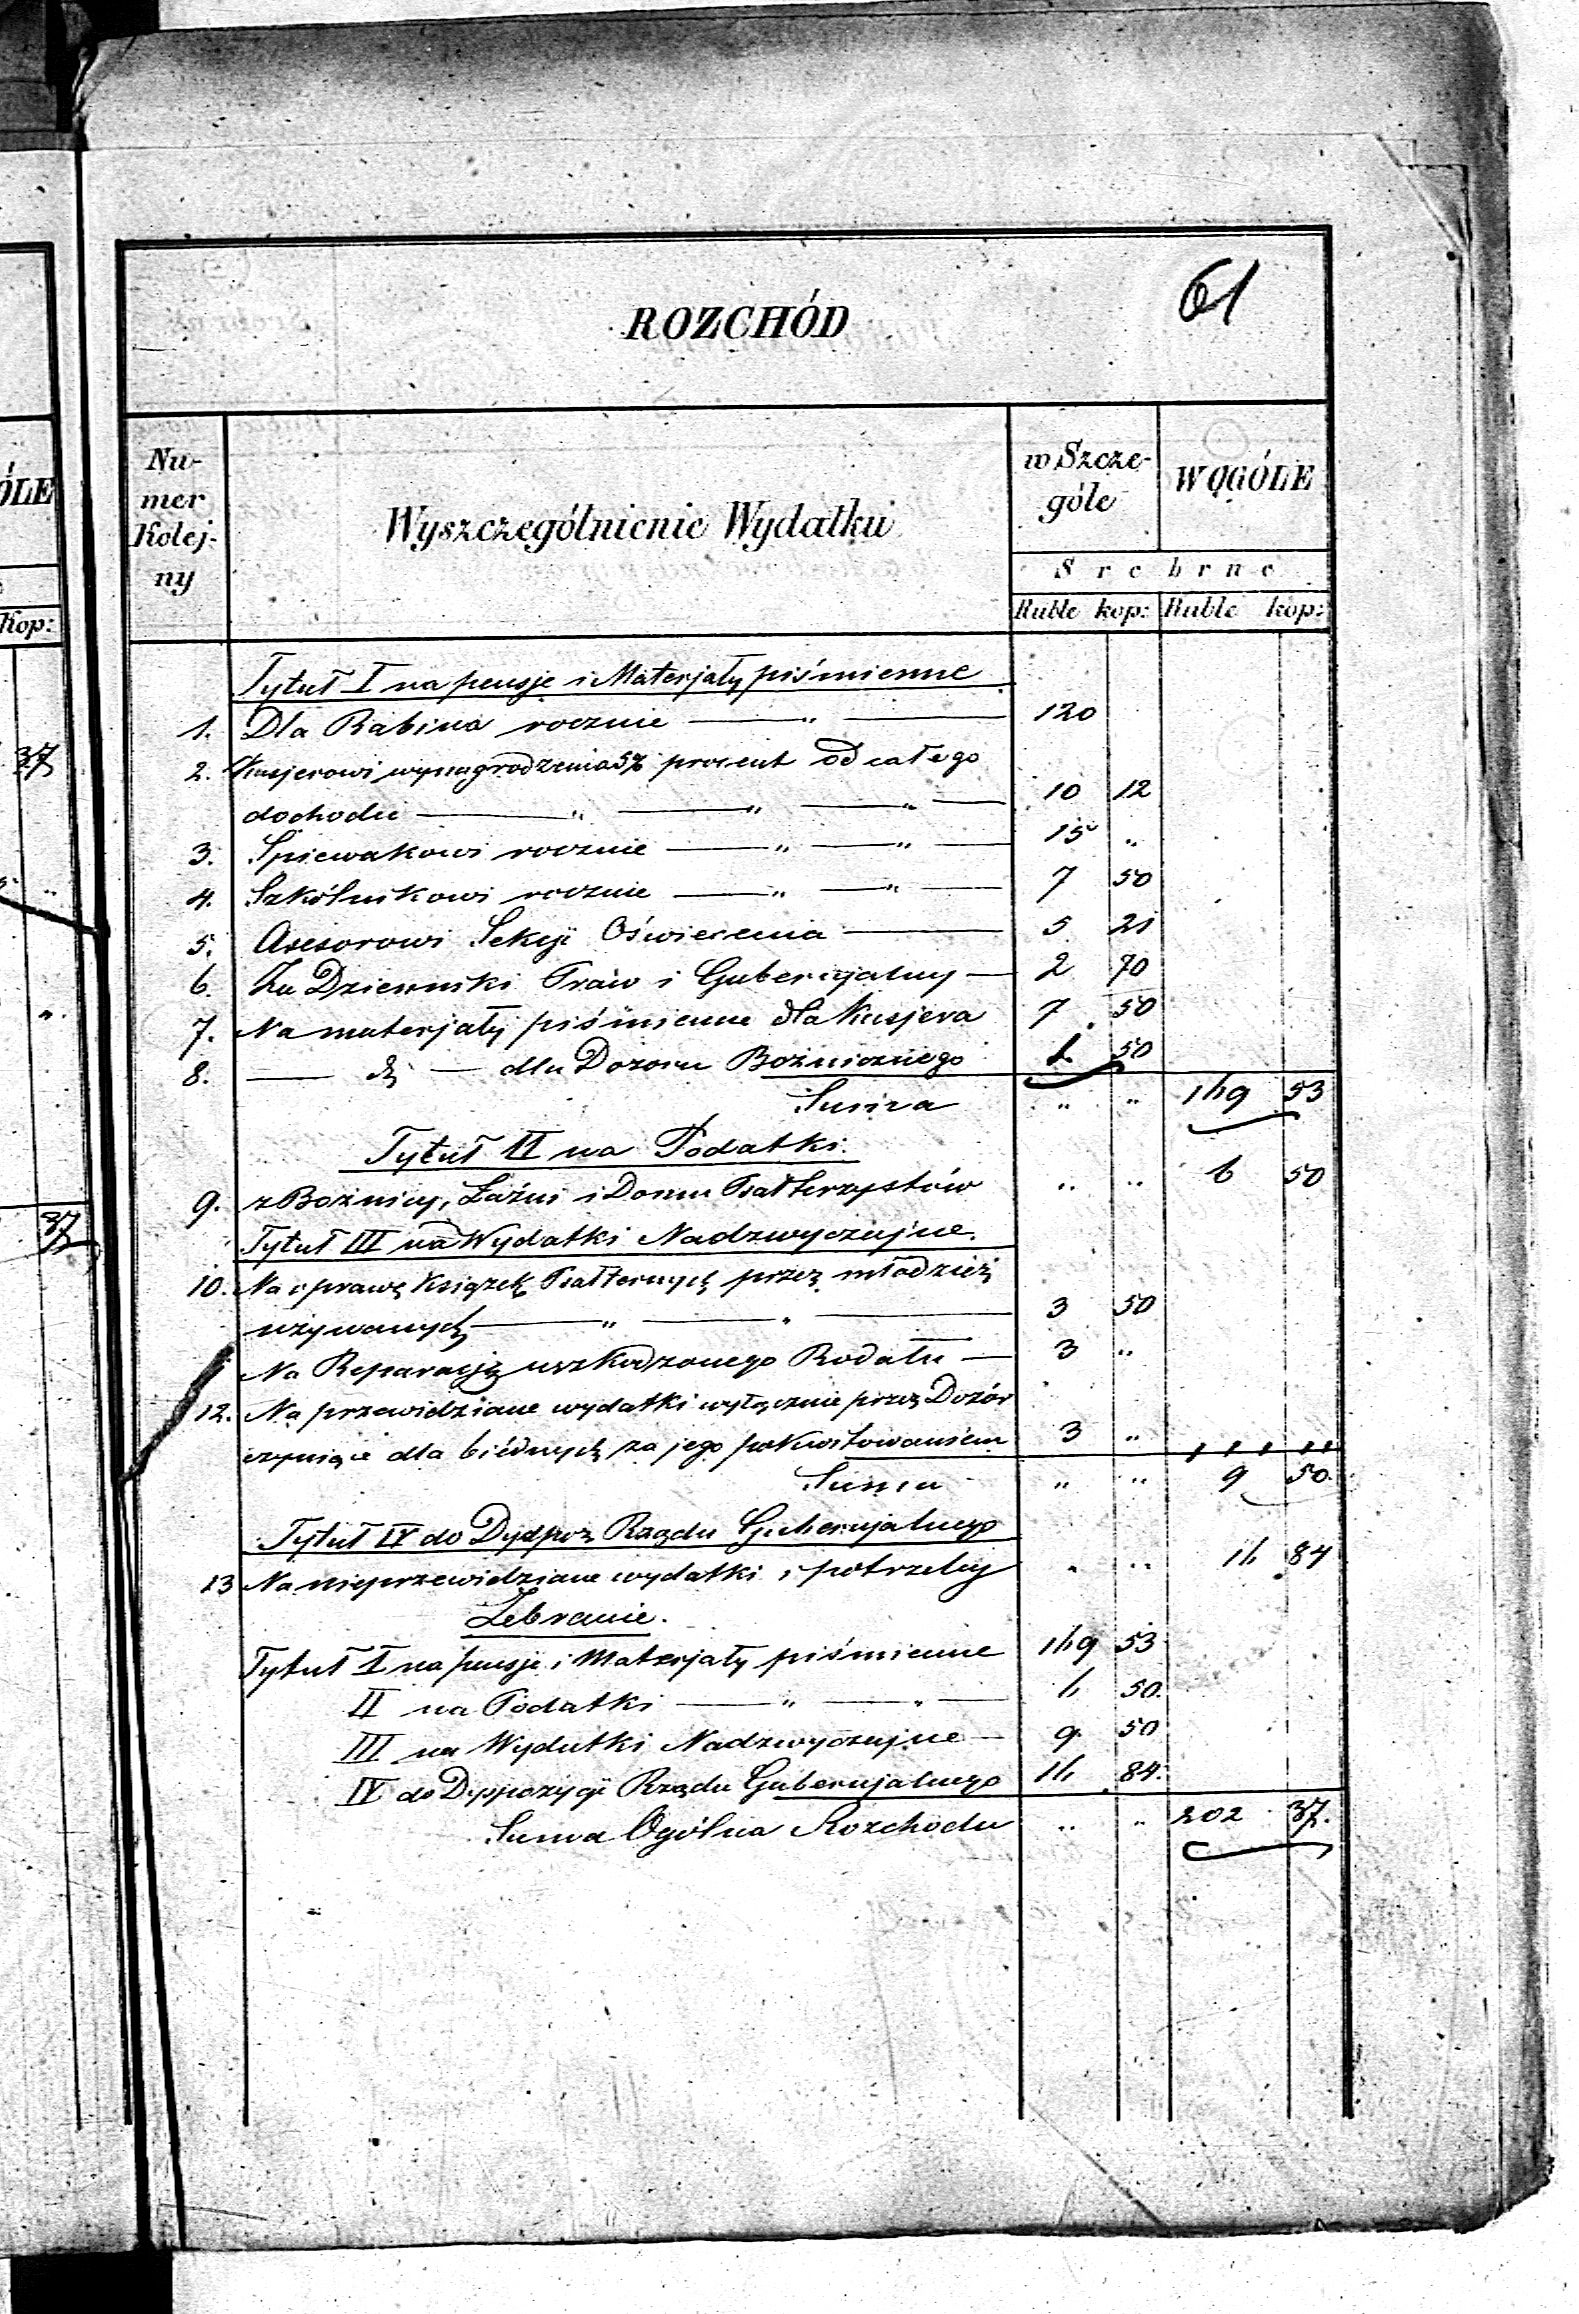 61
ROZCHÓD
Numer Kolejny
Wyszczególnienie Wydatku
w Szczególe
W OGÓLE
Srebrne
Ruble kop: Ruble kop:
Tytuł I na pensje i Materjały piśmienne
1. Dla Rabina rocznie — " — 120
2. Kasjerowi wynagrodzenia 5% procent od całego
dochodu — " — " — " — 10 12
3. Spiewakowi rocznie — " — " — 15 "
4. Szkólnikowi rocznie — " — " — 7 50
5. Asesorowi Sekcji Oświecenia — 5 21
6. Za Dzienniki Praw i Gubernjalny — 2 70
7. Na materjały piśmienne dla Kasjera 7 50
8. — dº — dla Dozoru Bożniczego 1. 50
Suma " " 169 53
Tytuł II na Podatki.
9. z Bożnicy, Łaźni i Domu Psałterzystów " " 6 50
Tytuł III na Wydatki Nadzwyczajne.
10. Na oprawę Książek Psałternych przez młodzież
używanych — " — " — 3 50
Na Reparację uszkodzonego Rodału — 3 "
12. Na przewidziane wydatki wyłącznie przez Dozór
czyniące dla biédnych za jego pokwitowaniem 3 "
Suma " " 9 50.
Tytuł IV do Dyspoz Rządu Gubernjalnego
13 Na nieprzewidziane wydatki i potrzeby " " 16 84
Zebranie.
Tytuł I na pensje i Materjały piśmienne 169 53
II na Podatki — " — " — 6 50.
III na Wydatki Nadzwyczajne — 9 50
IV do Dyspozycji Rządu Gubernjalnego 16 84.
Suma Ogólna Rozchodu " " 202 37.
ÓLE
Kop:
37
37